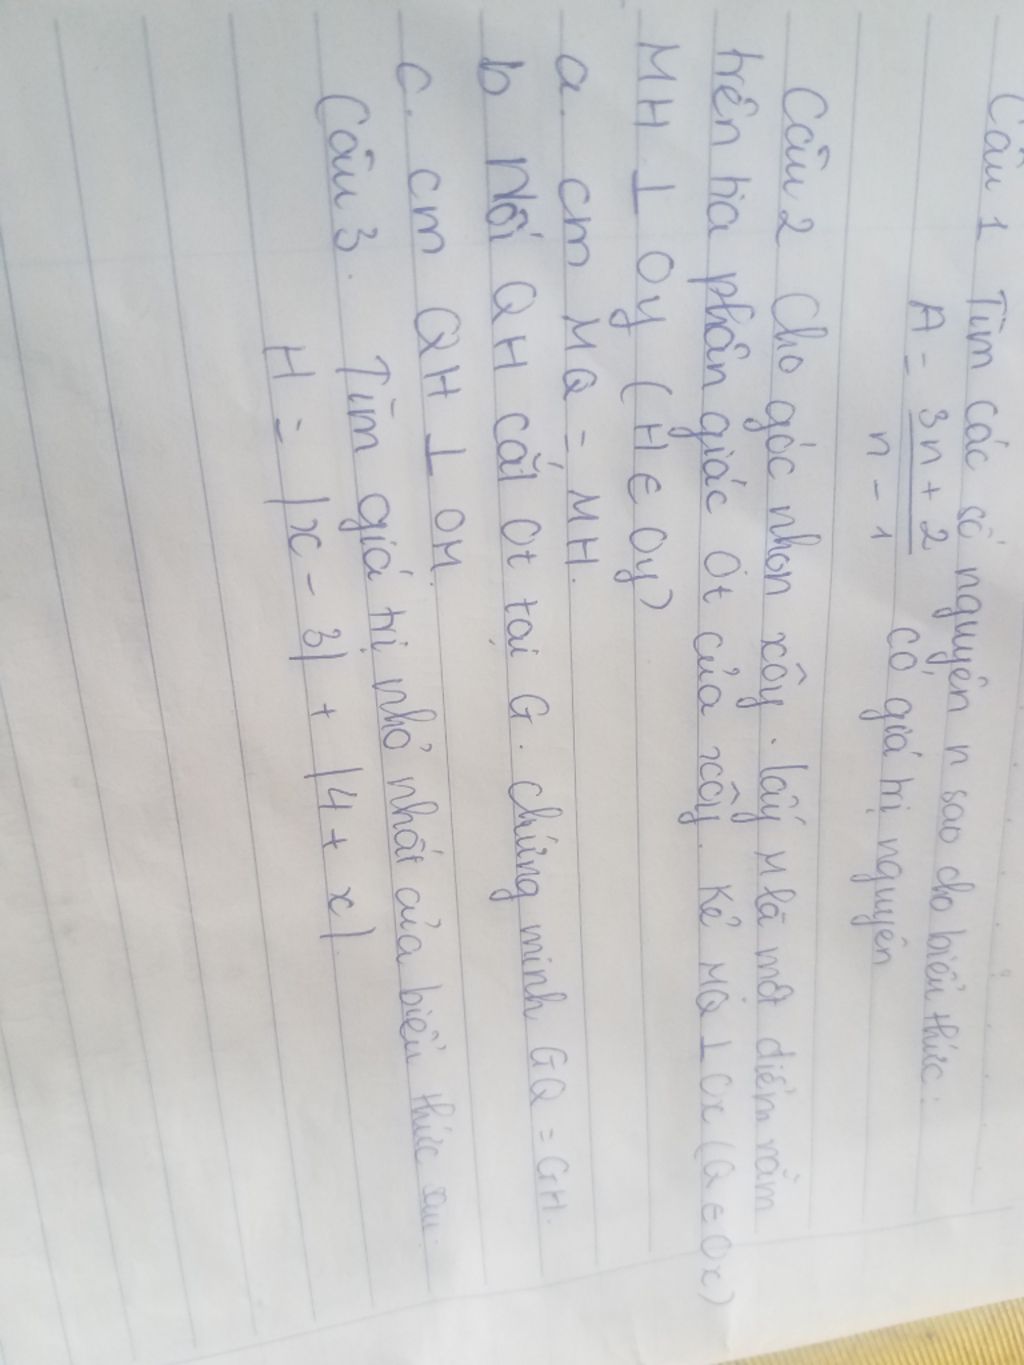 Câu 1 Tìm các số nguyên n sao cho biểu thức:
A = 3n + 2 / n - 1 có giá trị nguyên
Câu 2 Cho góc nhọn xÔy. lấy M là một điểm nằm
trên tia phân giác Ot của xÔy. Kẻ MQ ⊥ Ox (Q ∈ Ox)
MH ⊥ Oy (H ∈ Oy)
a. cm MQ = MH.
b Nối QH cắt Ot tại G. chứng minh GQ = GH.
c. cm QH ⊥ OM.
Câu 3. Tìm giá trị nhỏ nhất của biểu thức sau:
H = |x - 3| + |4 + x|